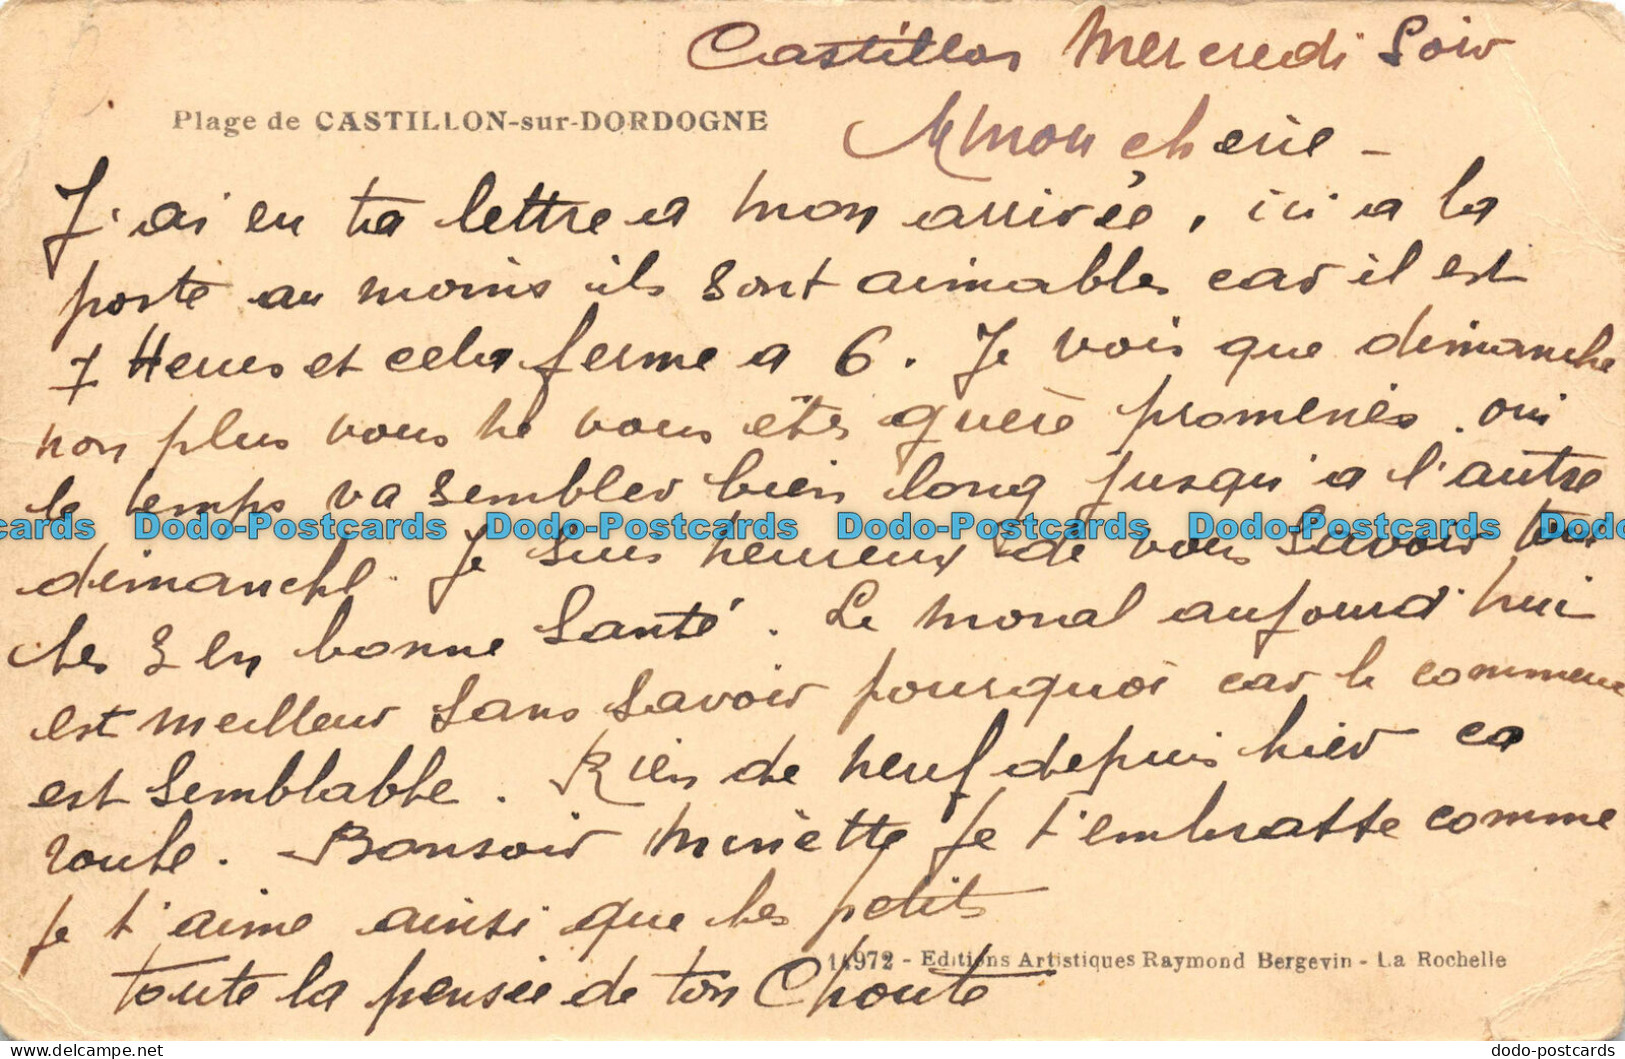 Castillon Mercredi Soir
Plage de CASTILLON-sur-DORDOGNE
Mmon cherie -
J'ai eu ta lettre a mon arrivée, ici a la
poste au moins ils sont aimables car il est
7 Heures et cela ferme a 6. Je vois que dimanche
non plus vous ne vous êtes guère promenés. oui
le temps va sembler bien long jusqu'a l'autre
cards Dodo-Postcards Dodo-Postcards Dodo-Postcards Dodo-Postcards Dodo
dimanche. Je suis heureux de vous savoir tous
les 3 en bonne santé. Le moral aujourd'hui
est meilleur sans savoir pourquoi car le commerce
est semblable. Rien de neuf depuis hier ca
roule. Bonsoir Minette je t'embrasse comme
je t'aime ainsi que les petits
14972 - Editions Artistiques Raymond Bergevin - La Rochelle
toute la pensée de ton Choute
dodo-postcards